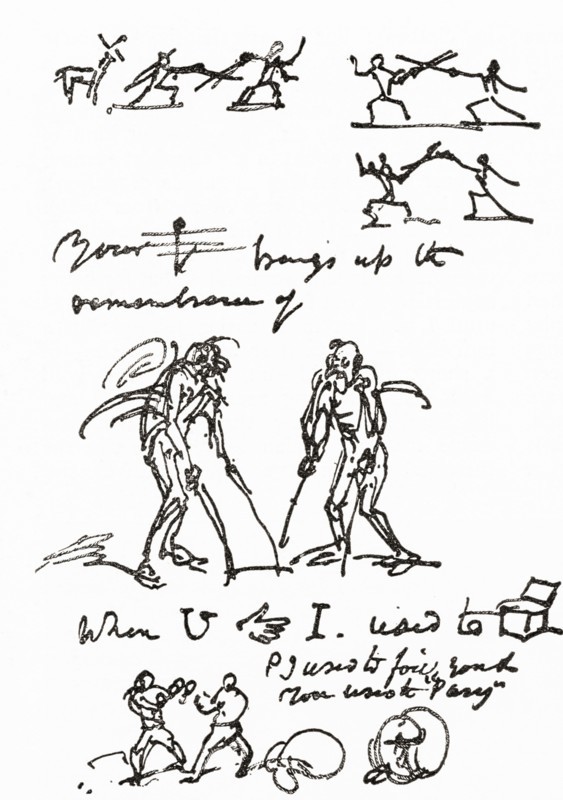 Your brings up the
remembrance of
When U I. used to
P I used to foil, and
You used to "Parry"